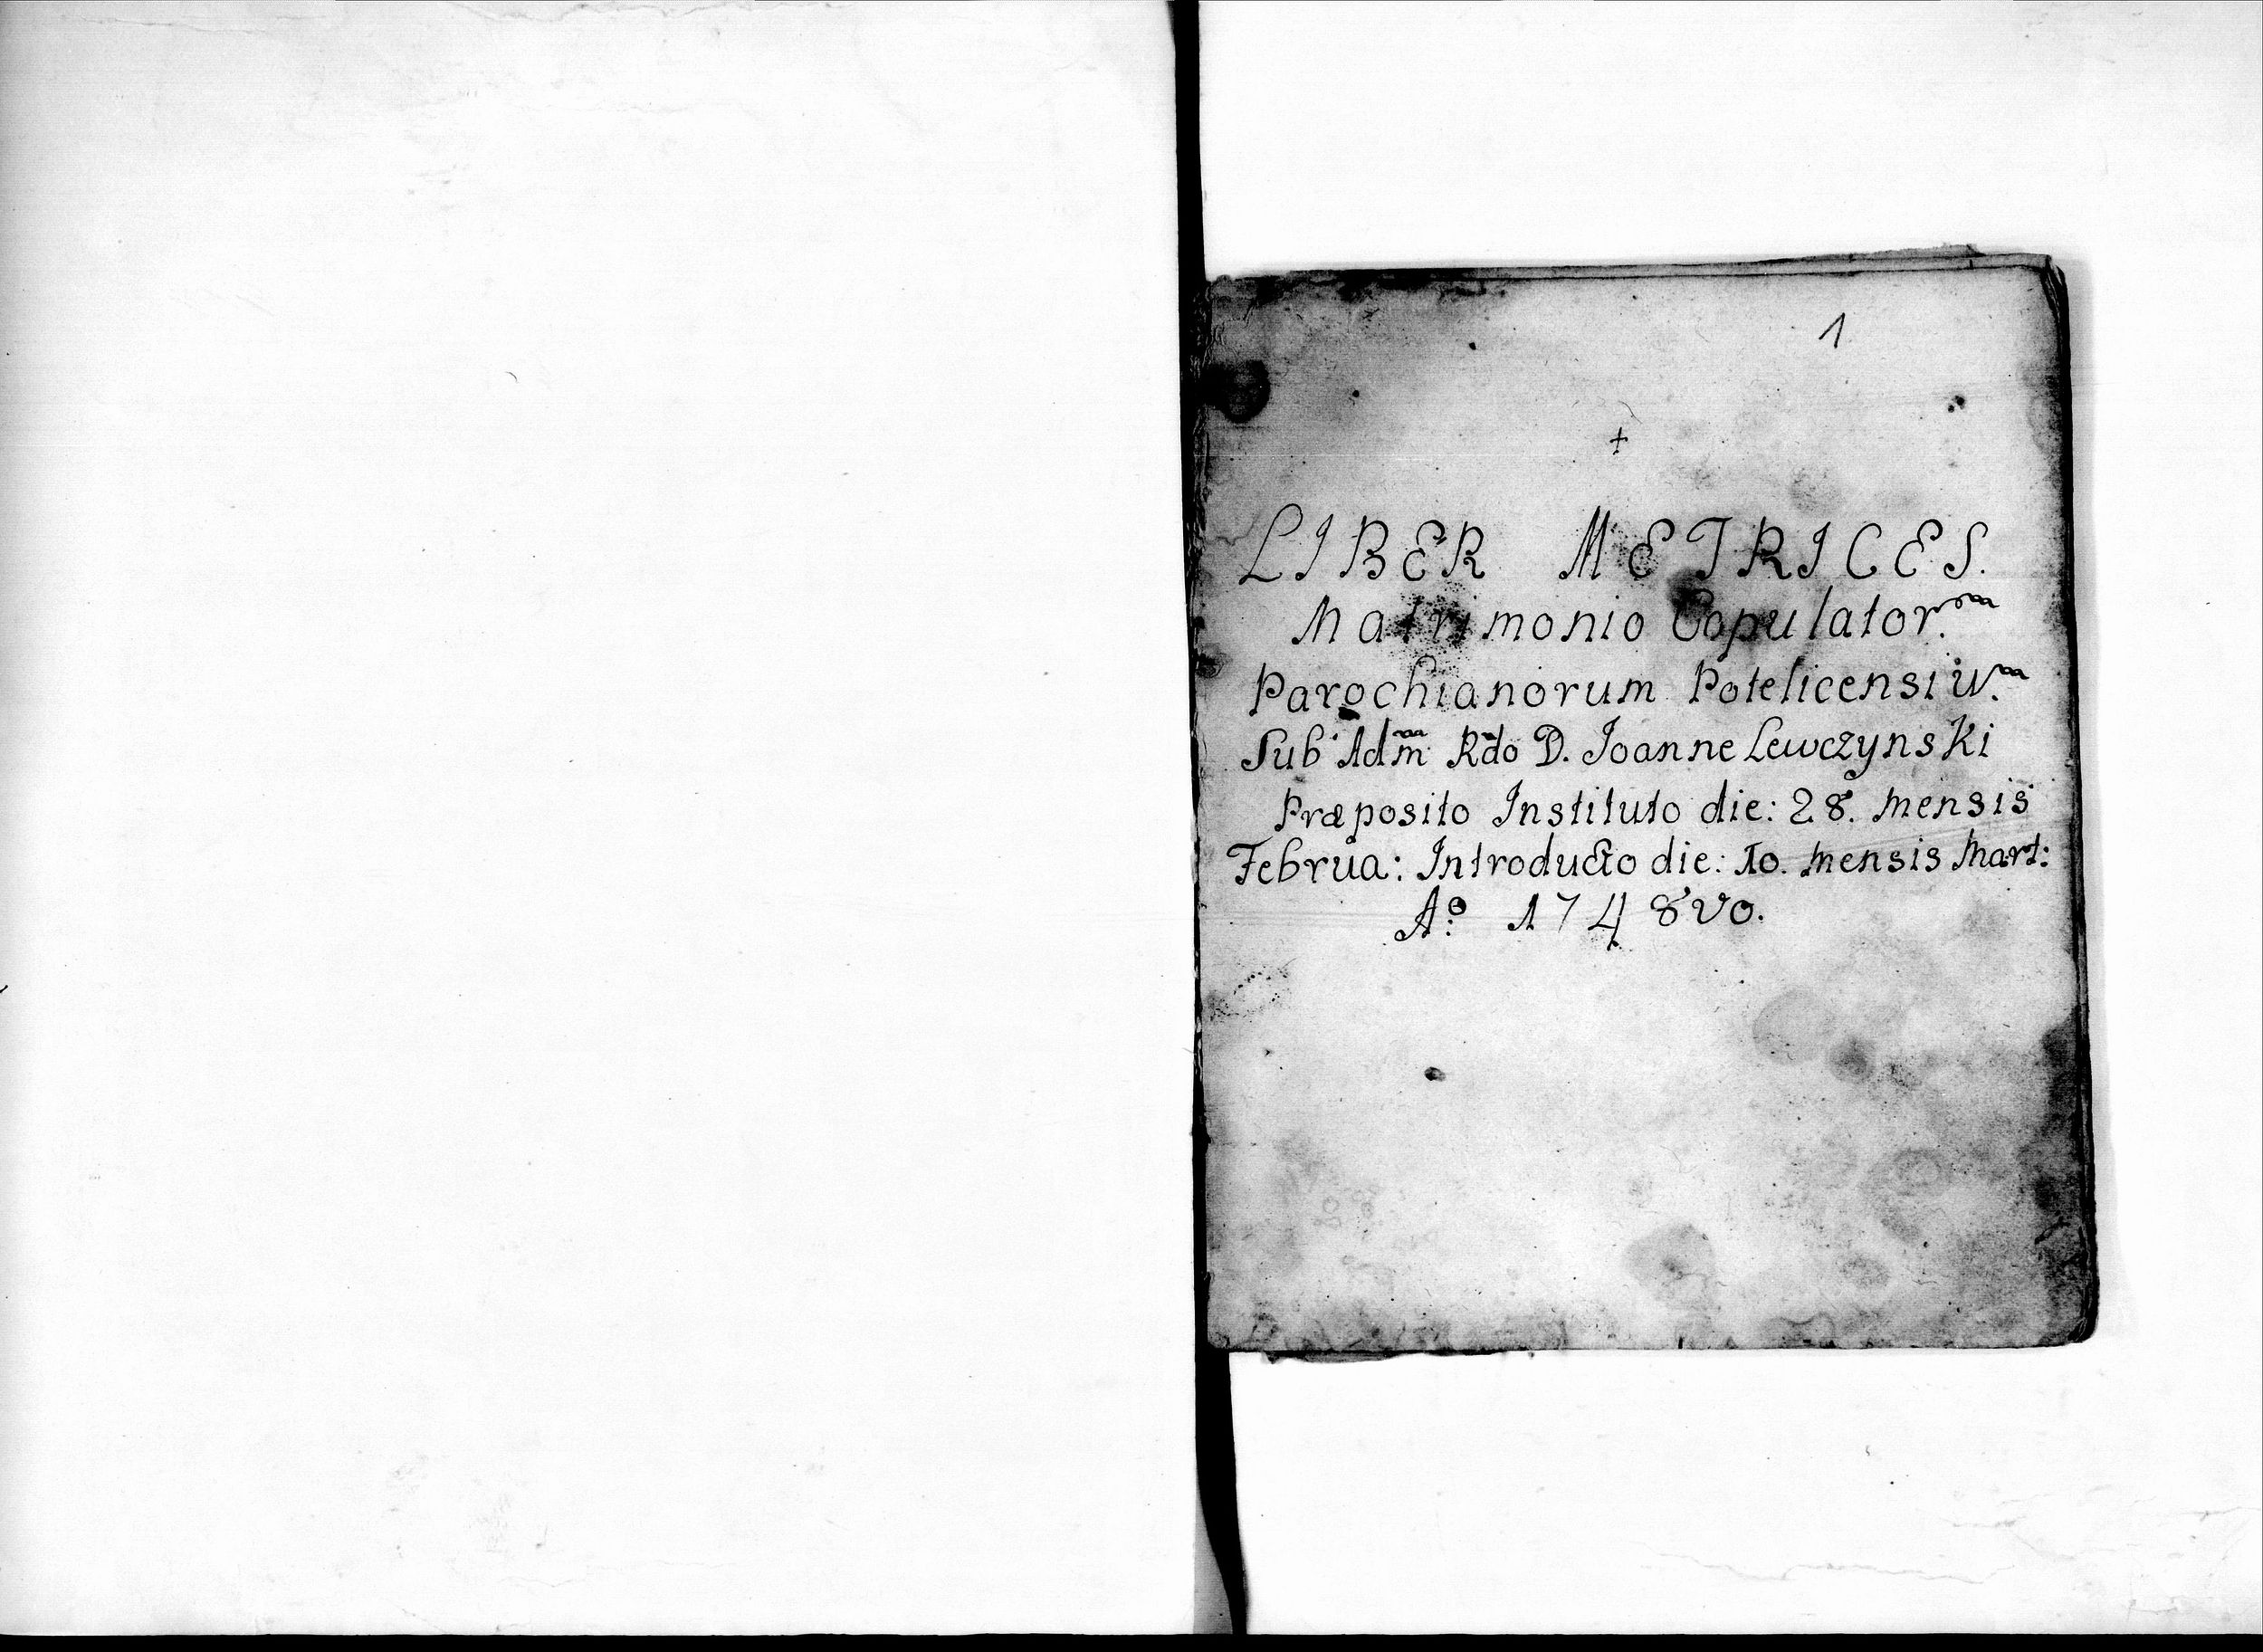 1
+
LIBER METRICES.
Matrimonio Copulator.um
Parochianorum Potelicensiu.m
Sub Adm̃ Rdo D. Joanne Lewczynski
Præposito Instituto die: 28. mensis
Februa: Introducto die: 10. mensis Mart:
Aº: 1748vo.